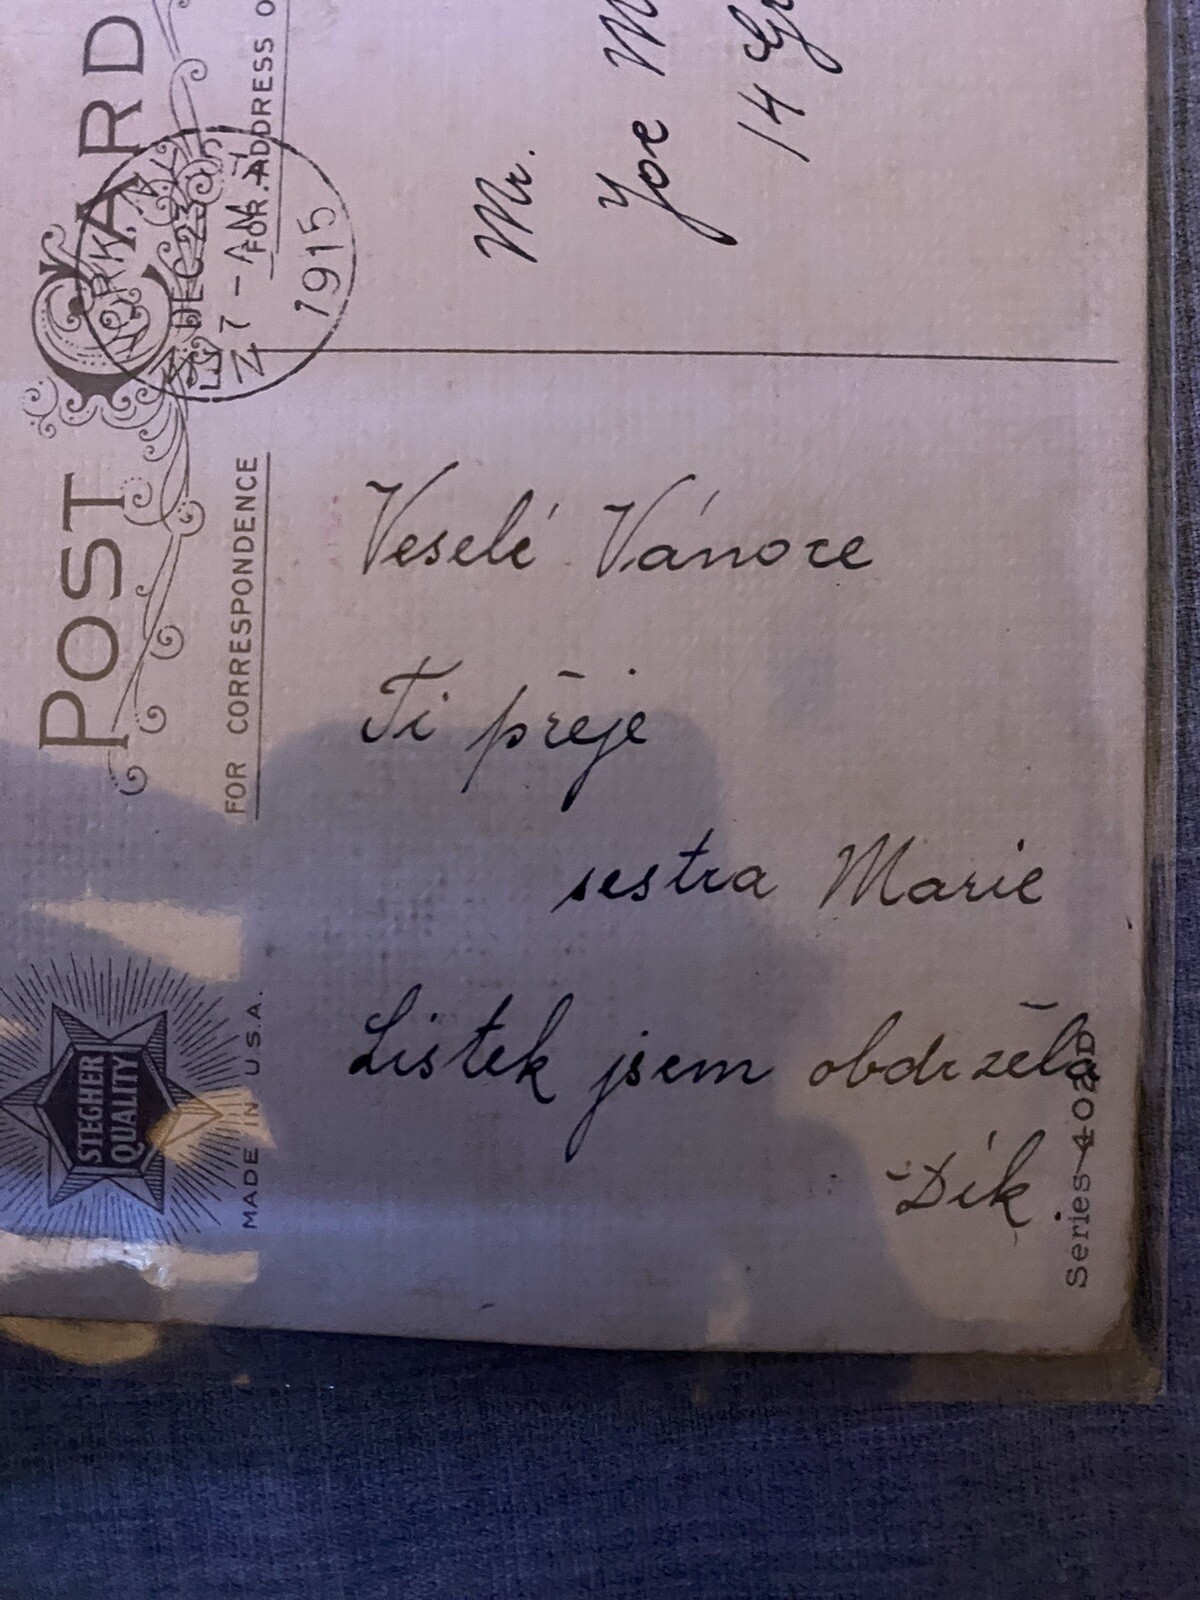 POST CARD
FOR CORRESPONDENCE
FOR ADDRESS
YORK, N.Y.
DEC 23
7 - AM
1915
Mr.
Joe
14
Veselé Vánoce
Ti přeje
sestra Marie
Lístek jsem obdržela
Dík.
STEGHER
QUALITY
MADE IN U.S.A.
Series 402D